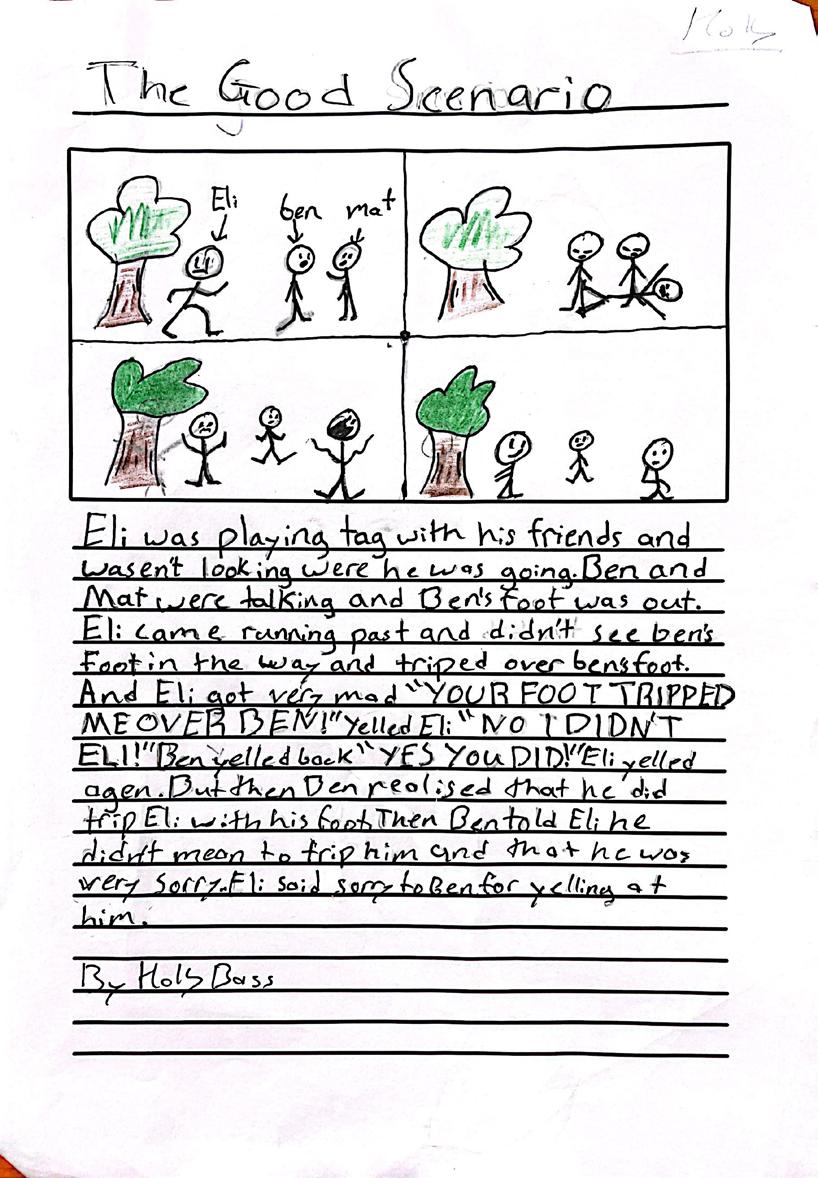 Holly
The Good Scenario
Eli
ben mat
Eli was playing tag with his friends and
wasen't looking were he was going. Ben and
Mat were talking and Ben's foot was out.
Eli came running past and didn't see ben's
foot in the way and triped over bens foot.
And Eli got very mad "YOUR FOOT TRIPPED
ME OVER BEN!" Yelled Eli "NO I DIDN'T
ELI!" Ben yelled back "YES YOU DID!" Eli yelled
agen. But then Ben realised that he did
trip Eli with his foot. Then Ben told Eli he
didn't mean to trip him and that he was
very sorry. Eli said sorry to Ben for yelling at
him.
By Holly Bass